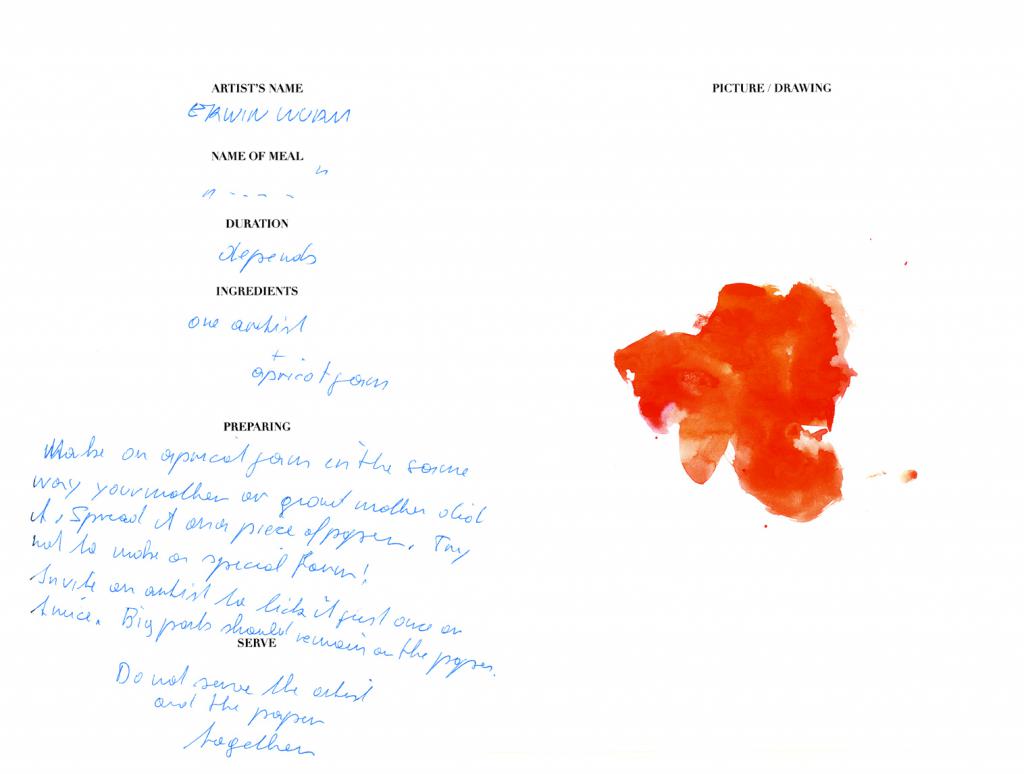 ARTIST'S NAME
ERWIN WURM
NAME OF MEAL
" - - - - "
DURATION
depends
INGREDIENTS
one artist
+
apricot jam
PREPARING
Make an apricot jam in the same
way your mother or grand mother did
it, Spread it on a piece of paper. Try
not to make a special Form!
Invite an artist to lick it just once or
twice. Big parts should remain on the paper.
SERVE
Do not serve the artist
and the paper
together
PICTURE / DRAWING